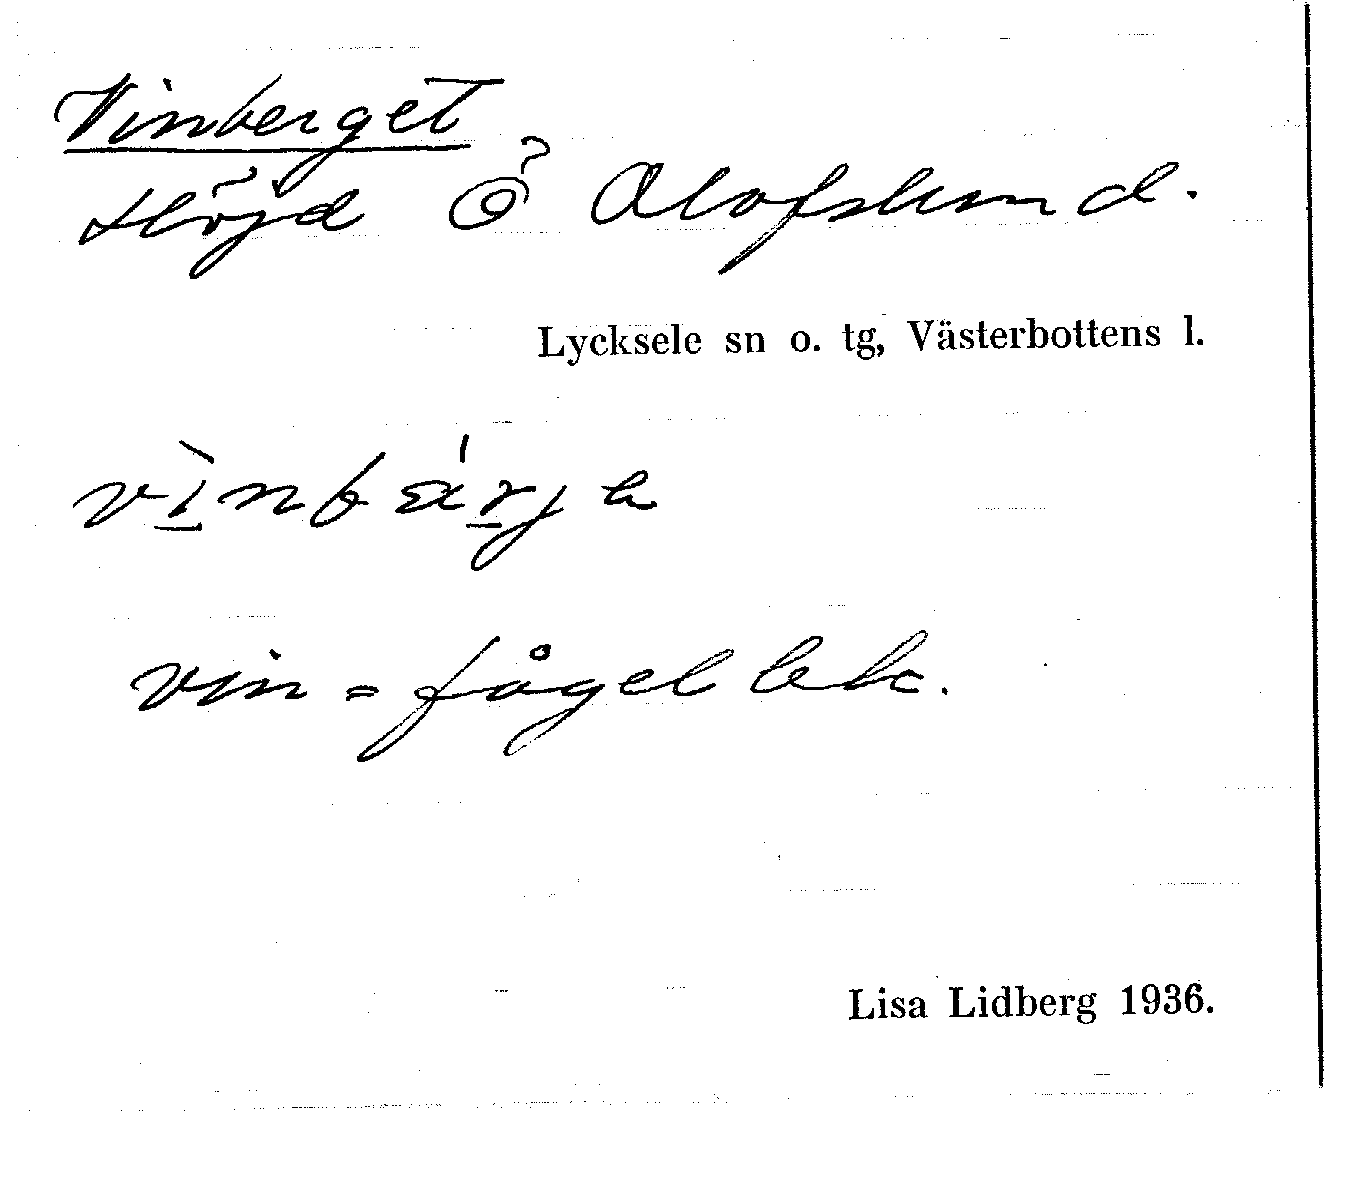 Vinberget
Höjd Ö Olofslund.
Lycksele sn o. tg, Västerbottens l.
vin = fågellek.
Lisa Lidberg 1936.